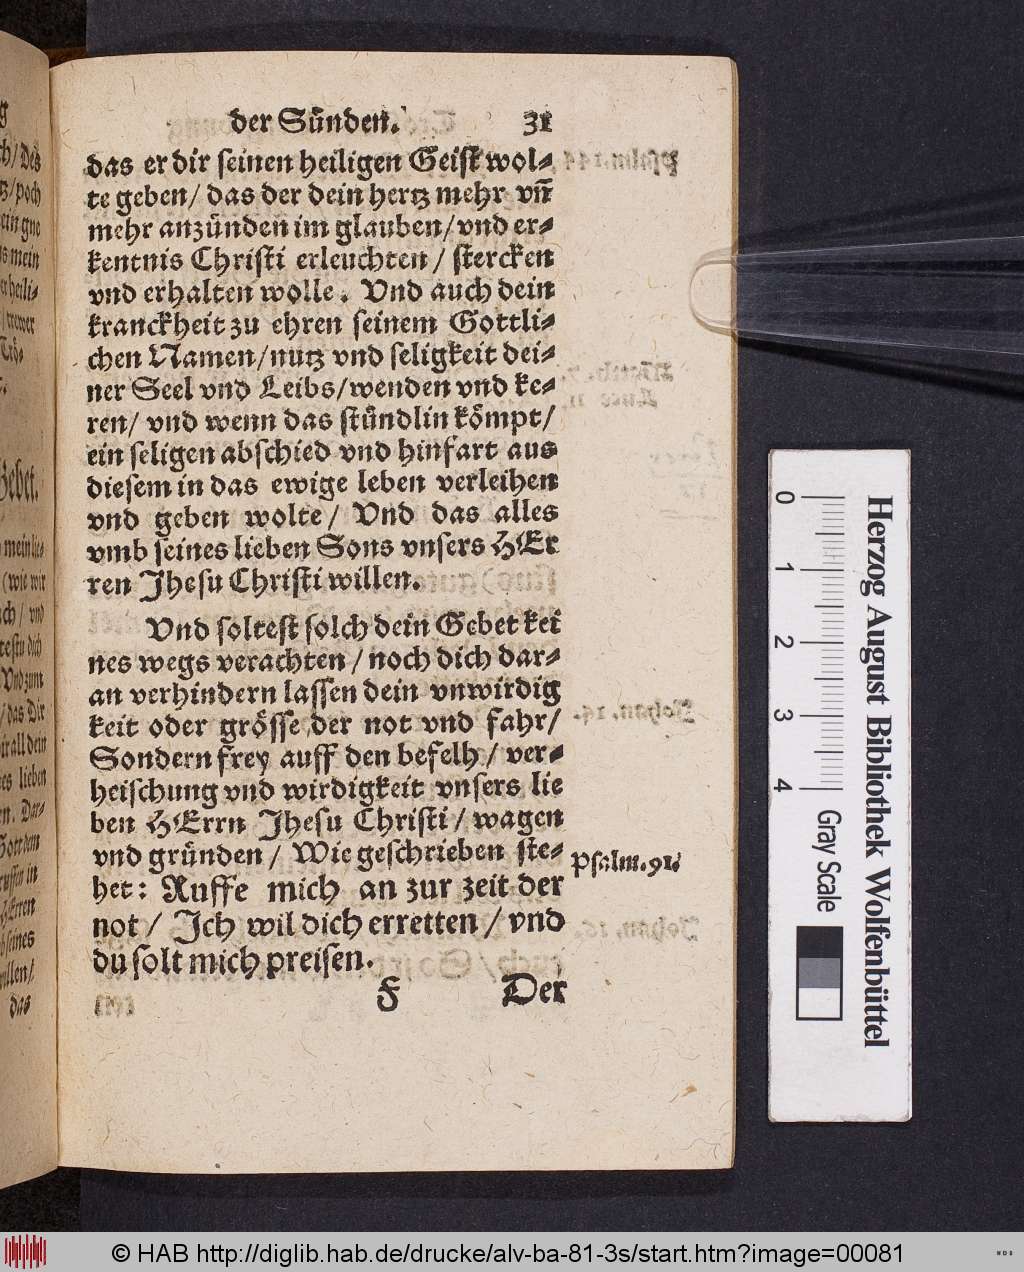 der Sünden. 31
das er dir seinen heiligen Geist wol⸗
te geben/ das der dein hertz mehr vn̄
mehr anzünden im glauben/ vnd er⸗
kentnis Christi erleuchten / stercken
vnd erhalten wolle. Vnd auch dein
kranckheit zu ehren seinem Gottli⸗
chen Namen/ nutz vnd seligkeit dei⸗
ner Seel vnd Leibs/ wenden vnd ke⸗
ren/ vnd wenn das stündlin kömpt/
ein seligen abschied vnd hinfart aus
diesem in das ewige leben verleihen
vnd geben wolte/ Vnd das alles
vmb seines lieben Sons vnsers HEr
ren Jhesu Christi willen.
Vnd soltest solch dein Gebet kei
nes wegs verachten / noch dich dar⸗
an verhindern lassen dein vnwirdig
keit oder grösse der not vnd fahr/
Sondern frey auff den befelh / ver⸗
heischung vnd wirdigkeit vnsers lie
ben HErrn Jhesu Christi / wagen
vnd gründen / Wie geschrieben ste⸗
het: Ruffe mich an zur zeit der
not / Ich wil dich erretten / vnd
du solt mich preisen.
Psalm. 91.
F Der
ch/ Des
tz/ poch
s mein
heili⸗
Gebet.
mein lie⸗
(wie wir
ch / vnd
Vnd zum
/ das Dir
all dein
es lieben
en. Dar⸗
Gott dem
ruffen in
HErren
seines
willen/
das
0 1 2 3 4
Gray Scale
Herzog August Bibliothek Wolfenbüttel
© HAB http://diglib.hab.de/drucke/alv-ba-81-3s/start.htm?image=00081